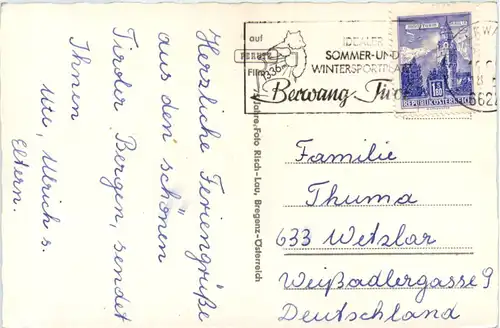 Herzliche Feriengrüße
aus den schönen
Tiroler Bergen, sendet
Ihnen
Ute, Ulrich s.
Eltern.
auf
PERUTZ
Film
1336m
IDEALER
SOMMER-UND
WINTERSPORTPLATZ
Berwang-Tirol
1.80
REPUBLIK ÖSTERREICH
6622
Jahre Foto Risch-Lau, Bregenz-Österreich
Familie
Thuma
633 Wetzlar
Weißadlergasse 9
Deutschland